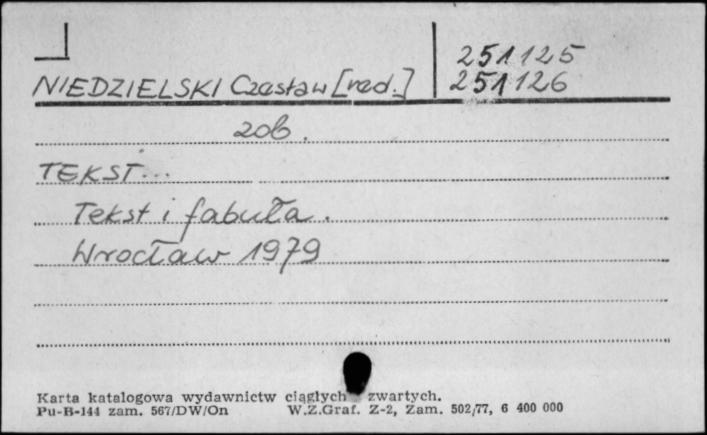 251125
NIEDZIELSKI Czesław [red.] 251126
zob.
TEKST...
Tekst i fabuła.
Wrocław 1979
Karta katalogowa wydawnictw ciągłych zwartych.
Pu-B-144 zam. 567/DW/On W.Z.Graf. Z-2, Zam. 502/77, 6 400 000